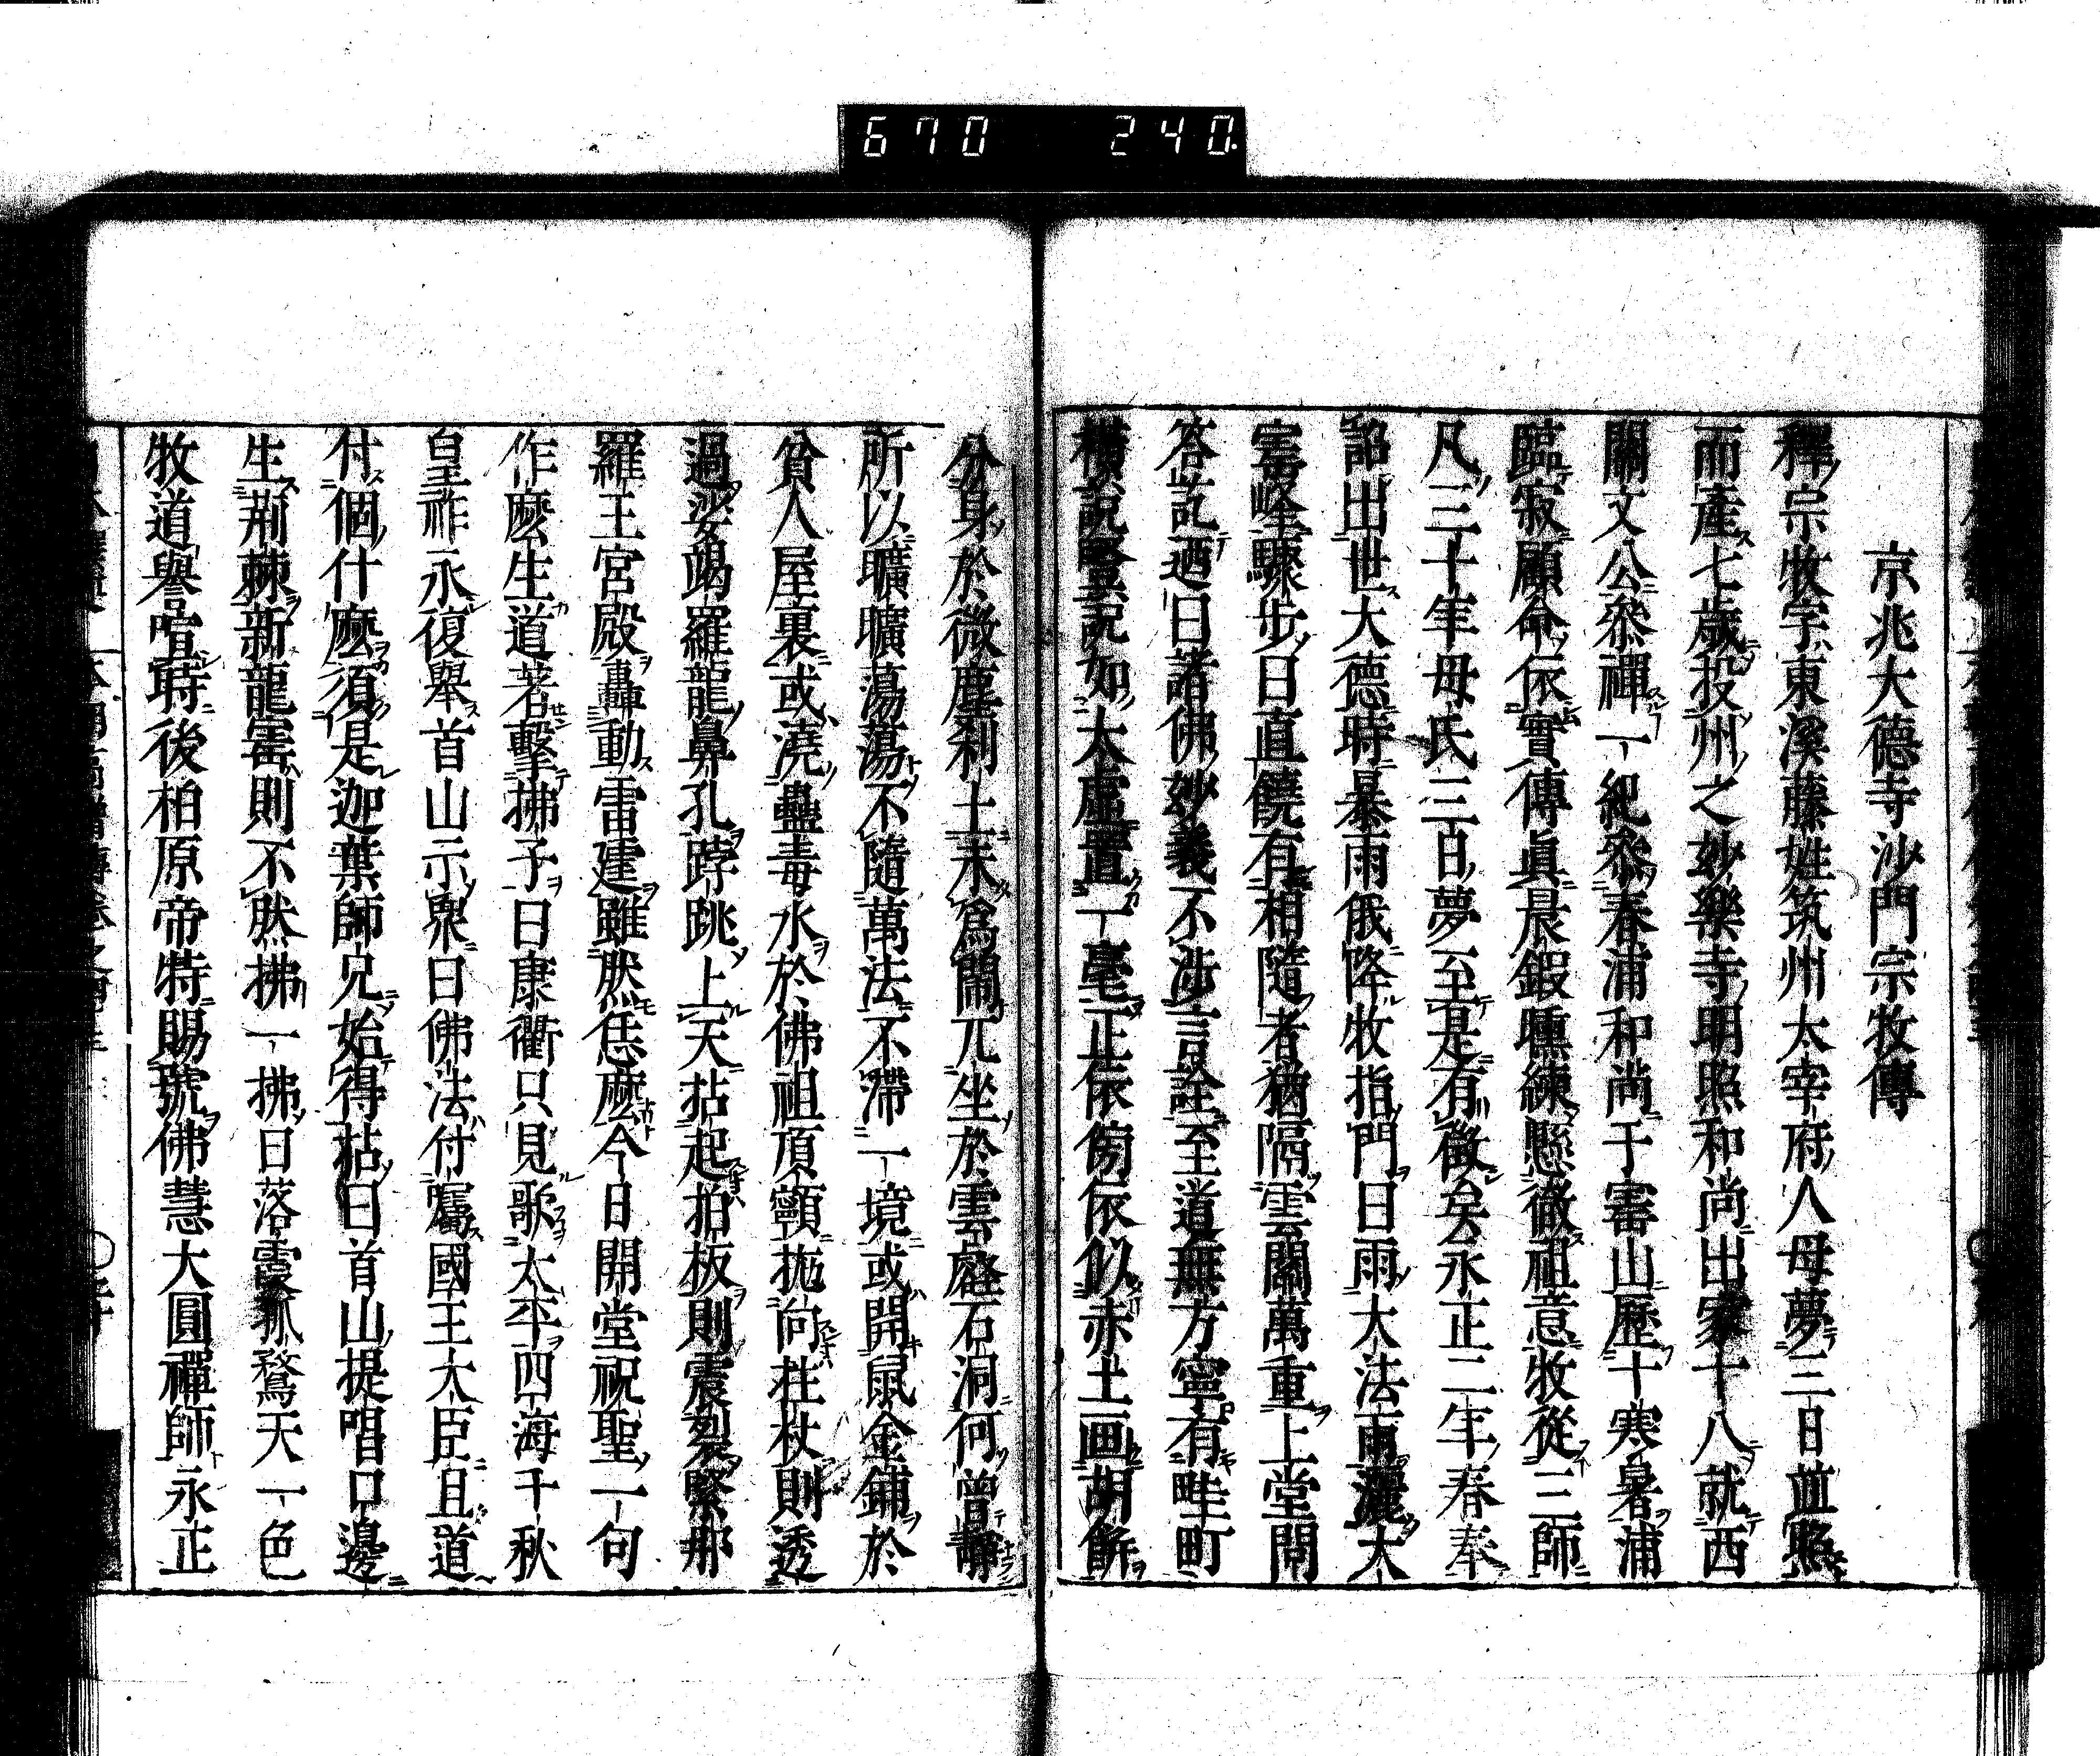 670 240.
京兆大德寺沙門宗牧傳
釋宗牧字東溪藤姓筑州太宰府人母夢三日並照
而產七歲投州之妙樂寺明照和尚出家十八就西
關文公參禪一紀參春浦和尚于審山歷十寒暑浦
臨寂顧命依實傳眞晨鍜曛練懸徹祖意牧從三師
凡三十年母氏三日夢至是有徵矣永正二年春奉
詔出世大德時暴雨俄降牧指門曰雨大法雨灑大
峰驟步曰直饒有相隨者猶隔雲關萬重上堂問
答訖迺曰諸佛妙義不涉言詮至道無方寧有畦町
橫說豎說如太虛置一毫正依傍依似赤土画胡餅
分身於微塵刹土未爲鬧兀坐於雲磴石洞何曾靜
所以曠曠蕩蕩不隨萬法不滯一境或開鼠金鋪於
貧人屋裏或澆蠱毒水於佛祖頂𩕳拋向拄杖則透
過娑竭羅龍鼻孔𨁝跳上天拈起拍板則震裂緊那
羅王宮殿轟動雷建雖然恁麼今日開堂祝聖一句
作麼生道著擊拂子曰康衢只見歌太平四海千秋
皇祚永復舉首山示衆曰佛法付囑國王大臣且道
付個什麼須是迦葉師兄始得拈曰首山提唱口邊
生荆棘新龍寶則不然拂一拂曰落霞孤鶩天一色
牧道譽喧時後柏原帝特賜號佛慧大圓禪師永正